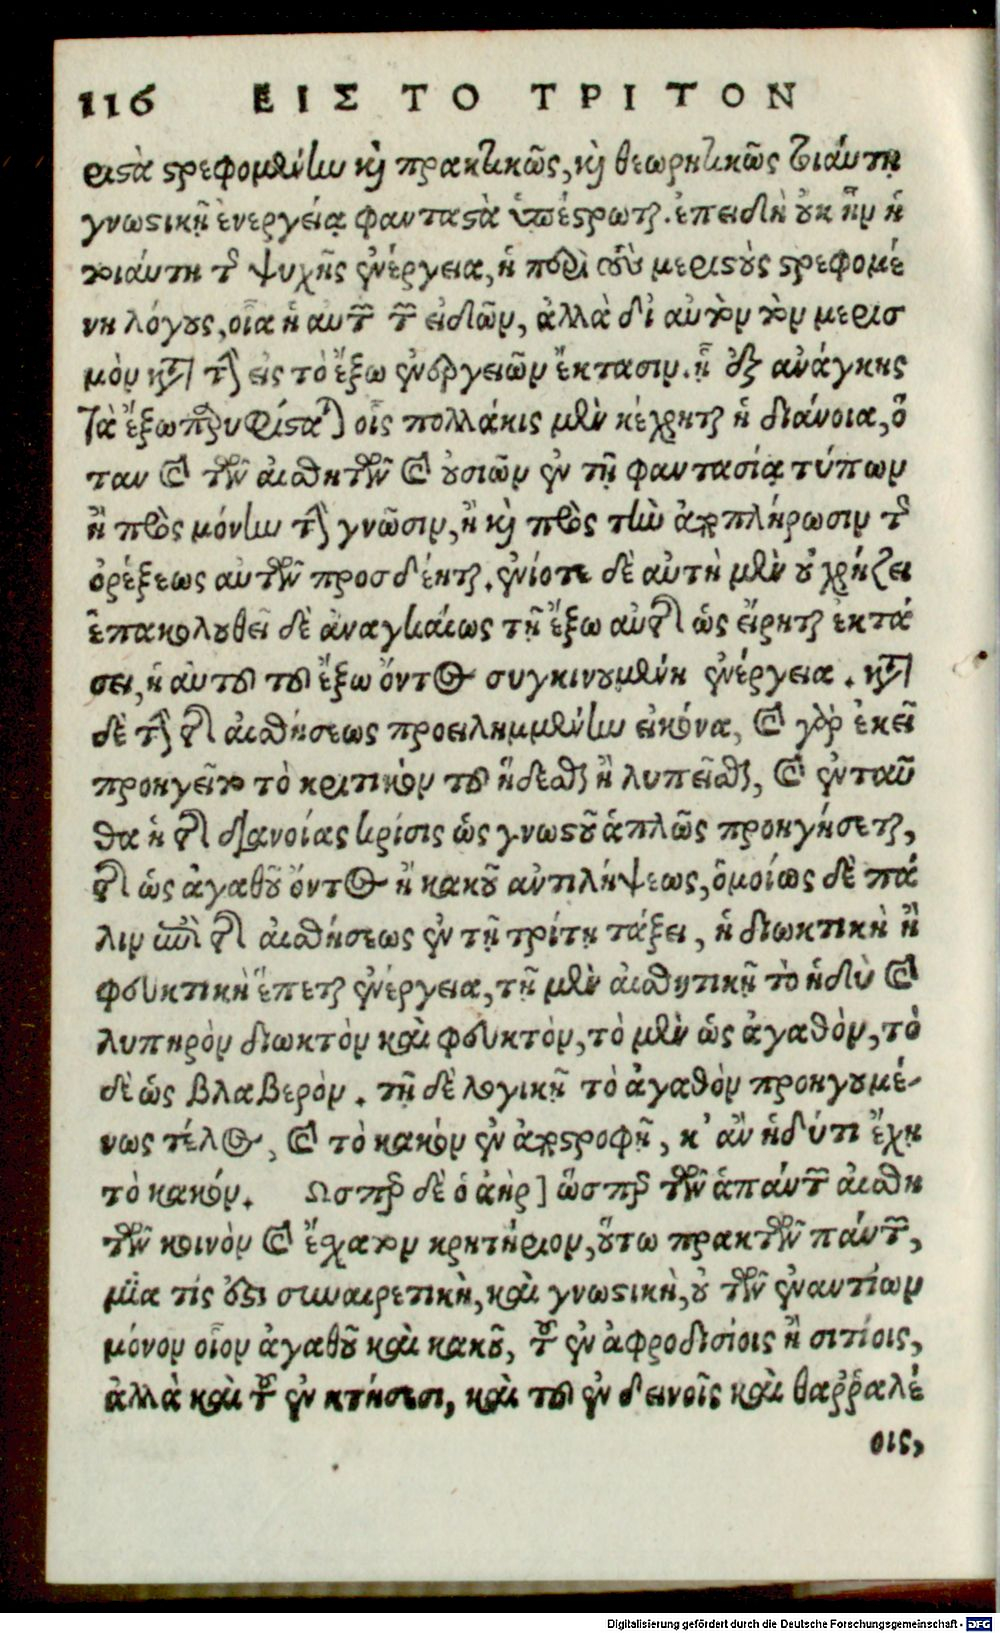 116 ΕΙΣ ΤΟ ΤΡΙΤΟΝ
ριϛὰ ϛρεφομένην καὶ πρακτικῶς, καὶ θεωρητικῶς τοιάυτη
γνωϛικῇ ἐνεργείᾳ φανταϛὰ ὑπέϛρωται. ἐπειδὴ ȣκ ἦν ἡ
τοιάυτη τῆς ψυχῆς ἐνέργεια, ἡ περὶ τοὺς μεριϛοὺς ϛρεφομέ
νη λόγȣς, οἵα ἡ αυτῶν τῶν ειδῶν, ἀλλὰ δι᾽ αὐτὸν τὸν μερισ
μὸν κατὰ τὴν εἰς τὸ ἔξω ἐνεργειῶν ἔκτασιν. ᾗ ἐξ ανάγκης
τὰ ἔξω παρυφίϛαται] οἷς πολλάκις μὲν κέχρηται ἡ διάνοια, ὅ
ταν καὶ τῶν αἰσθητῶν καὶ ȣσιῶν ἐν τῇ φαντασίᾳ τύπων
ἢ πρὸς μόνην τὴν γνῶσιν, ἢ καὶ πρὸς τὴν ἀποπλήρωσιν τῆς
ὀρέξεως αυτῶν προσδέηται. ἐνίοτε δὲ αὐτὴ μὲν ȣ χρήζει
ἐπακολȣθεῖ δὲ ἀναγκαίως τῇ ἔξω αὐτῆς ὡς εἴρηται ἐκτά
σει, ἡ αυτοῦ τοῦ ἔξω ὄντος συγκινȣμένη ἐνέργεια. κατὰ
δὲ τὴν τῆς αἰσθήσεως προειλημμένην εἰκόνα, καὶ γὸρ ἐκεῖ
προηγεῖτο τὸ κριτικὸν τοῦ ἥδεσθαι ἢ λυπεῖσθαι, καὶ ἐνταῦ
θα ἡ τῆς διανοίας κρίσις ὡς γνωϛοῦ ἁπλῶς προηγήσεται,
τῆς ὡς ἀγαθοῦ ὄντος ἢ κακοῦ αντιλήψεως, ὁμοίως δὲ πά
λιν ἐπὶ τῆς αἰσθήσεως ἐν τῇ τρίτῃ τάξει, ἡ διωκτικὴ ἢ
φευκτικὴ ἕπεται ἐνέργεια, τῇ μὲν αἰσθητικῇ τὸ ἡδὺ καὶ
λυπηρὸν διωκτὸν καὶ φευκτὸν, τὸ μὲν ὡς ἀγαθὸν, τὸ
δὲ ὡς βλαβερὸν. τῇ δὲ λογικῇ τὸ ἀγαθὸν προηγȣμέ-
νως τέλος, καὶ τὸ κακὸν ἐν ἀποϛροφῇ, κ᾽ ἂν ἡδύτι ἔχῃ
τὸ κακόν. Ωσπερ δὲ ὁ ἀὴρ] ὥσπερ τῶν ἁπάντων αἰσθη
τῶν κοινὸν καὶ ἔχατον κρητήριον, ȣ̔́τω πρακτῶν πάντων,
μία τίς ἐϛι συναιρετικὴ, καὶ γνωϛικὴ, ȣ τῶν ἐναντίων
μόνον οἷον ἀγαθοῦ καὶ κακοῦ, τοῦ ἐν ἀφροδισίοις ἢ σιτίοις,
ἀλλὰ καὶ τοῦ ἐν κτήσεσι, καὶ τοῦ ἐν δεινοῖς καὶ θαῤῥαλέ
οις,
Digitalisierung gefördert durch die Deutsche Forschungsgemeinschaft - DFG